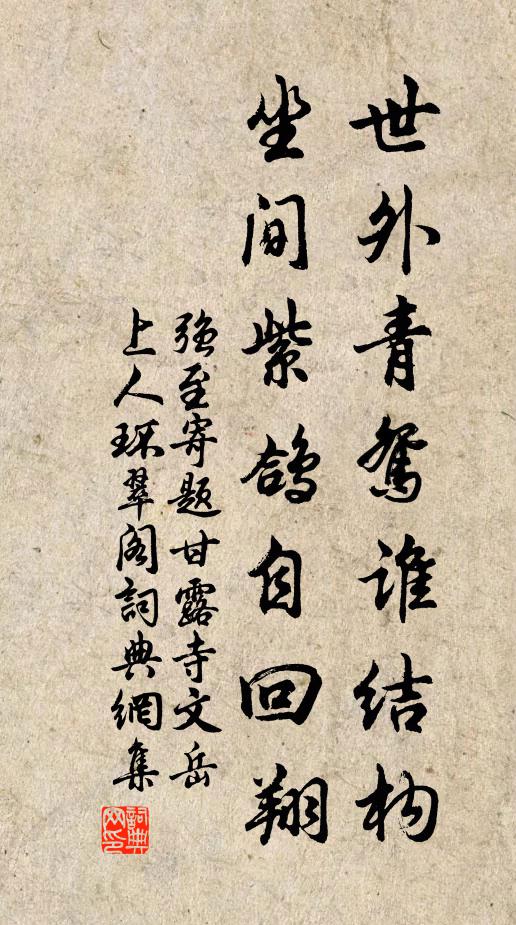 世外青鴛谁结构
坐间紫鸽自回翔
强至寄题甘露寺文岳
上人环翠阁詞典網集
詞典网印